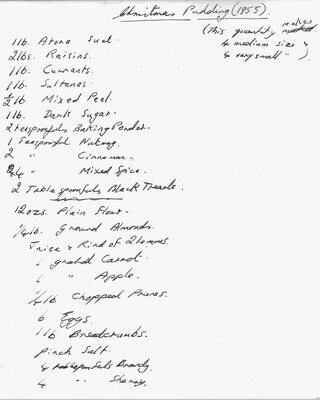 Christmas Pudding (1955).
(This quantity makes
4 medium size &
4 very small " )
1 lb. Atora Suet.
2 lbs. Raisins.
1 lb. Currants.
1 lb. Sultanas.
½ lb Mixed Peel.
1 lb. Dark Sugar.
2 teaspoonfuls Baking Powder.
1 Teaspoonful Nutmeg.
2 " Cinnamon.
" Mixed Spice.
2 Tablespoonfuls Black Treacle.
12 ozs. Plain Flour.
¼ lb. Ground Almonds.
Juice & Rind of 2 lemons.
1 grated Carrot.
1 " Apple.
¼ lb Chopped Prunes.
6 Eggs.
1 lb Breadcrumbs.
pinch Salt.
4 tablespoonfuls Brandy
4 " Sherry.